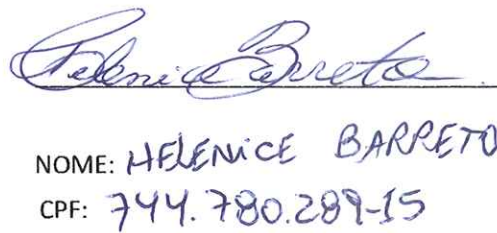 Helenice Barreto
NOME: HELENICE BARRETO
CPF: 744.780.289-15